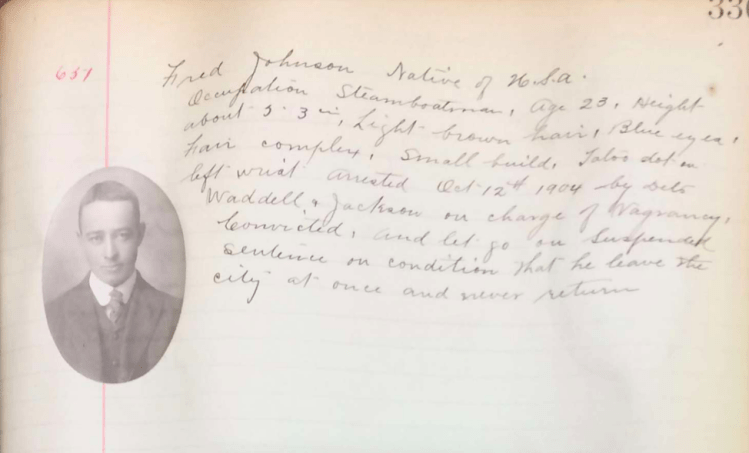 336
637
Fred Johnson Native of U.S.A.
Occupation Steamboatman, Age 23, Height
about 5-3 in, Light-brown hair, Blue eyes,
Fair complex, Small build, Tatoo dot on
left wrist arrested Oct 12th 1904 by Dets
Waddell & Jackson on charge of Vagrancy,
Convicted, and let go on Suspended
Sentence on condition that he leave the
city at once and never return